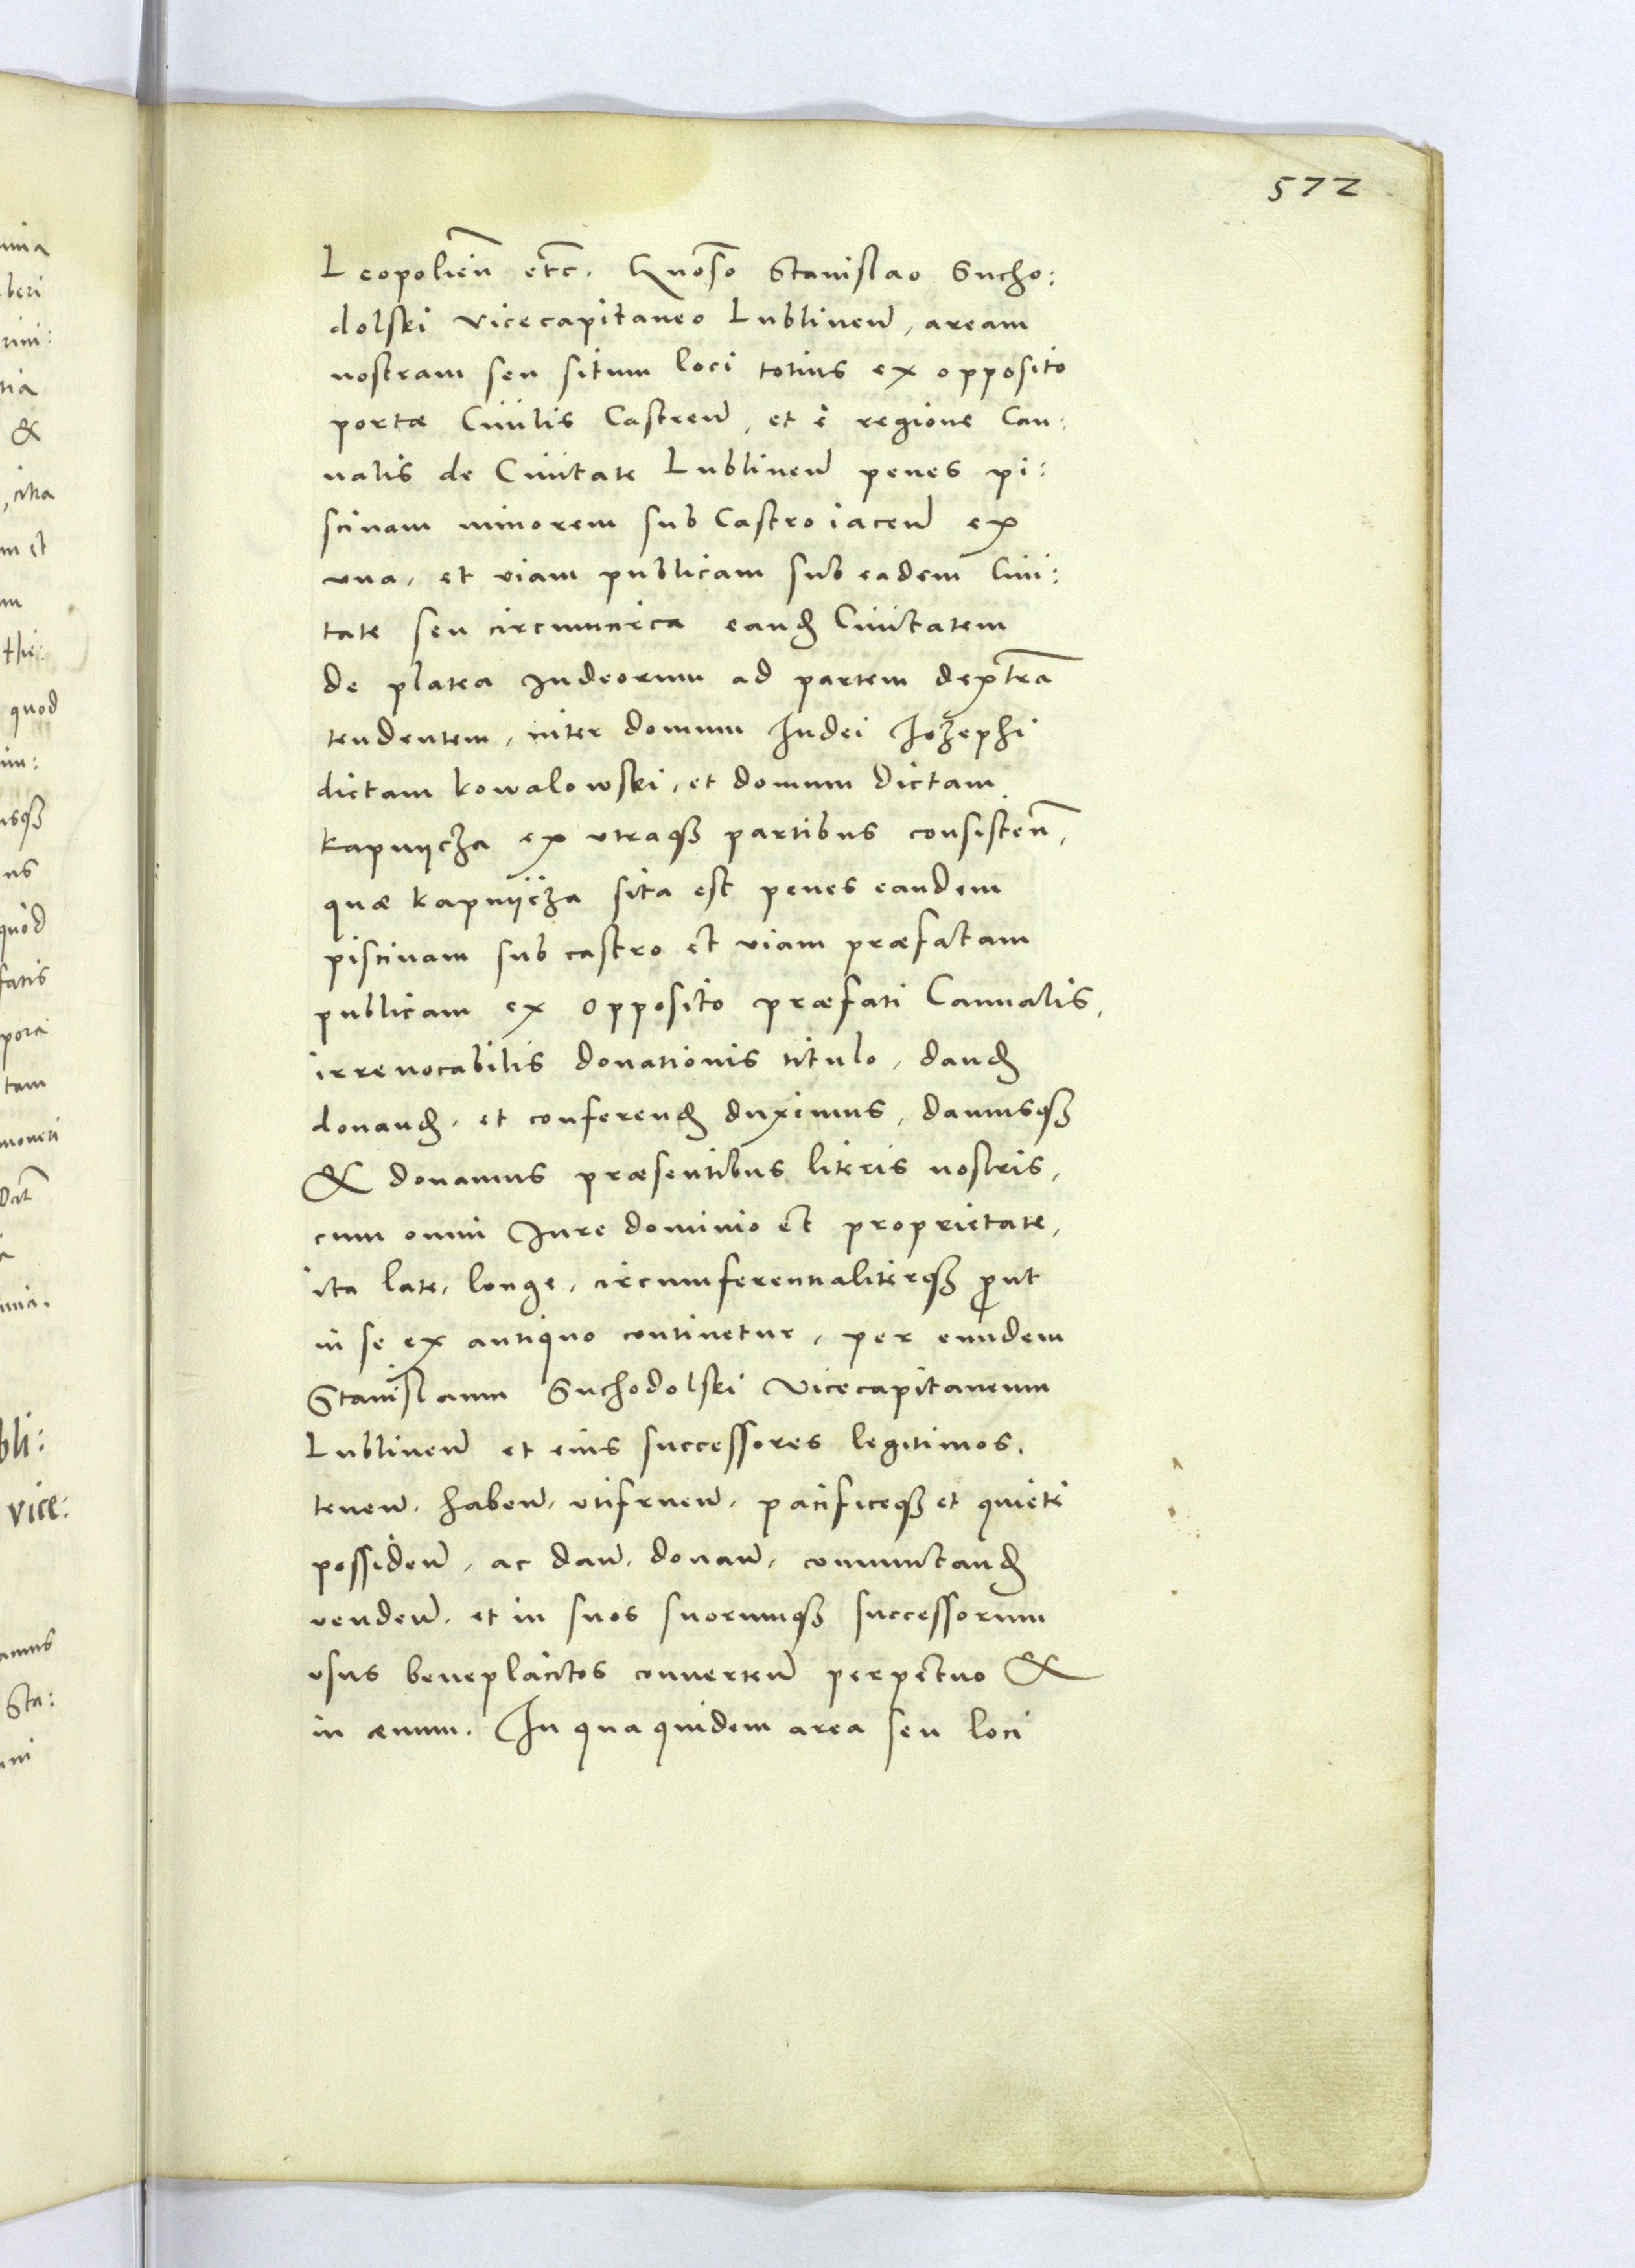 572
Leopolien̄ etc̄. Gnõso Stanislao Sucho:
dolski vicecapitaneo Lublinen̄, aream
nostram seu situm loci totius ex opposito
portæ Ciuilis Castren̄, et è regione Can:
nalis de Ciuitate Lublinen̄ penes pi:
scinam minorem sub Castro iacen̄ ex
vna, et viam publicam sub eadem Ciui:
tate seu circumcirca eand̄ Ciuitatem
de platea Iudeorum ad partem dextrā
tendentem, inter domum Iudei Jozephi
dictam kowalowski, et domum dictam
kapnijcza ex vtraqȝ partibus consisten̄,
quæ kapnijcza sita est penes eandem
piscinam sub castro et viam præfatam
publicam ex opposito præfati Cannalis,
irreuocabilis donationis titulo, dand̄
donand̄, et conferend̄ duximus, damusqȝ
& donamus præsentibus literis nostris,
cum omni Jure dominio et proprietate,
ita late, longe, circumferentialiterqȝ ꝓut
in se ex antiquo continetur, per eundem
Stanislaum Suchodolski Vicecapitaneum
Lublinen̄ et eius successores legitimos,
tenen̄, haben̄, vtifruen̄, pacificeqȝ et quiete
possiden̄, ac dan̄, donan̄, commutand̄
venden̄, et in suos suorumqȝ successorum
vsus beneplacitos conuerten̄ perpetuo &
in æuum. In qua quidem area seu loci